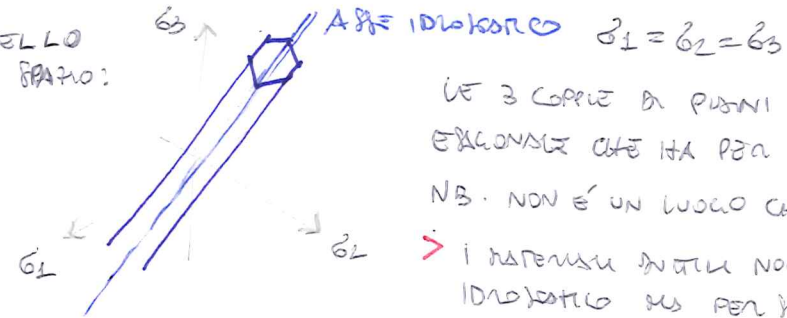 ELLO
SPAZIO:
σ3
ASSE IDROSTATICO σ1 = σ2 = σ3
LE 3 COPPIE DI PIANI
ESAGONALE CHE HA PER
NB. NON É UN LUOGO C
σ1
σ2
> I MATERIALI DUTTILI NO
IDROSTATICO MA PER